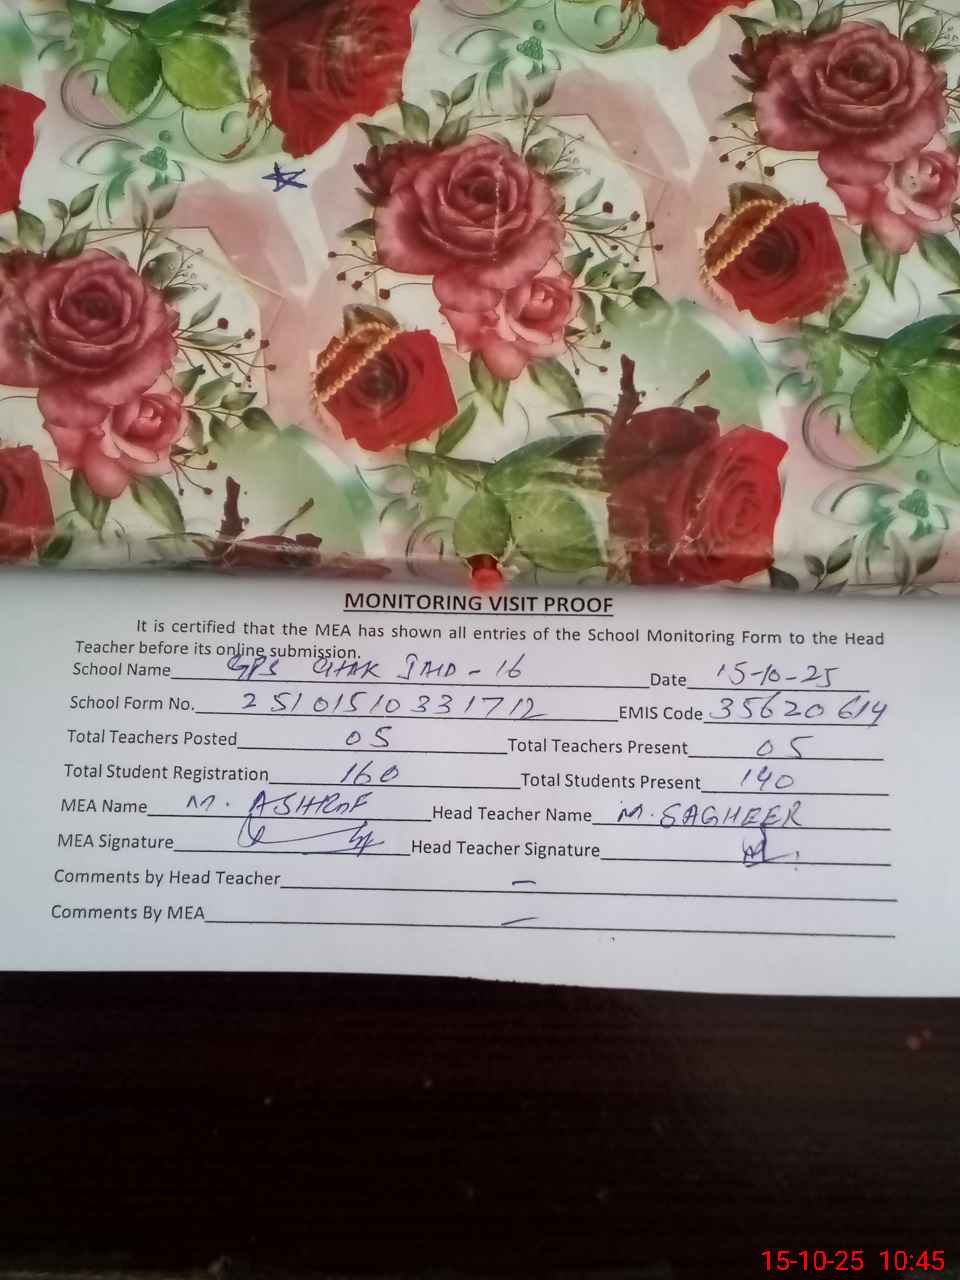 MONITORING VISIT PROOF
It is certified that the MEA has shown all entries of the School Monitoring Form to the Head
Teacher before its online submission.
School Name GPS CHAK JMD - 16 Date 15-10-25
School Form No. 2510151033 1712 EMIS Code 35620614
Total Teachers Posted 05 Total Teachers Present 05
Total Student Registration 160 Total Students Present 140
MEA Name M. ASHRAF Head Teacher Name M. SAGHEER
MEA Signature Head Teacher Signature
Comments by Head Teacher —
Comments By MEA —
15-10-25 10:45